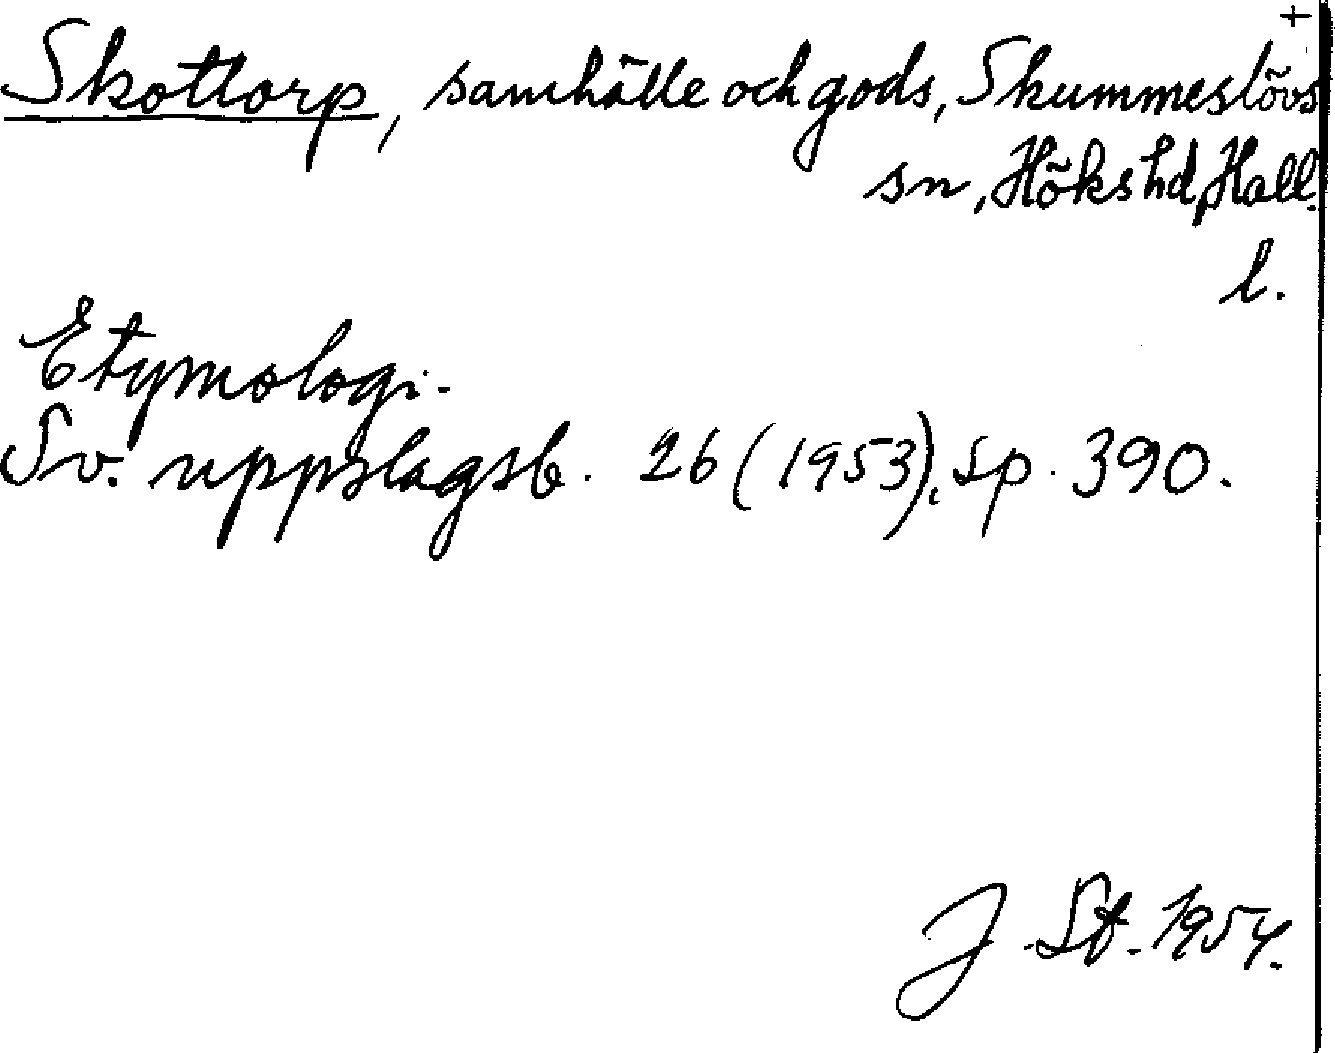 +
Skottorp, samhälle och gods, Skummeslövs
sn, Höks hd, Hall.
l.
Etymologi.
Sv. uppslagsb. 26 (1953), sp. 390.
J. St. 1954.